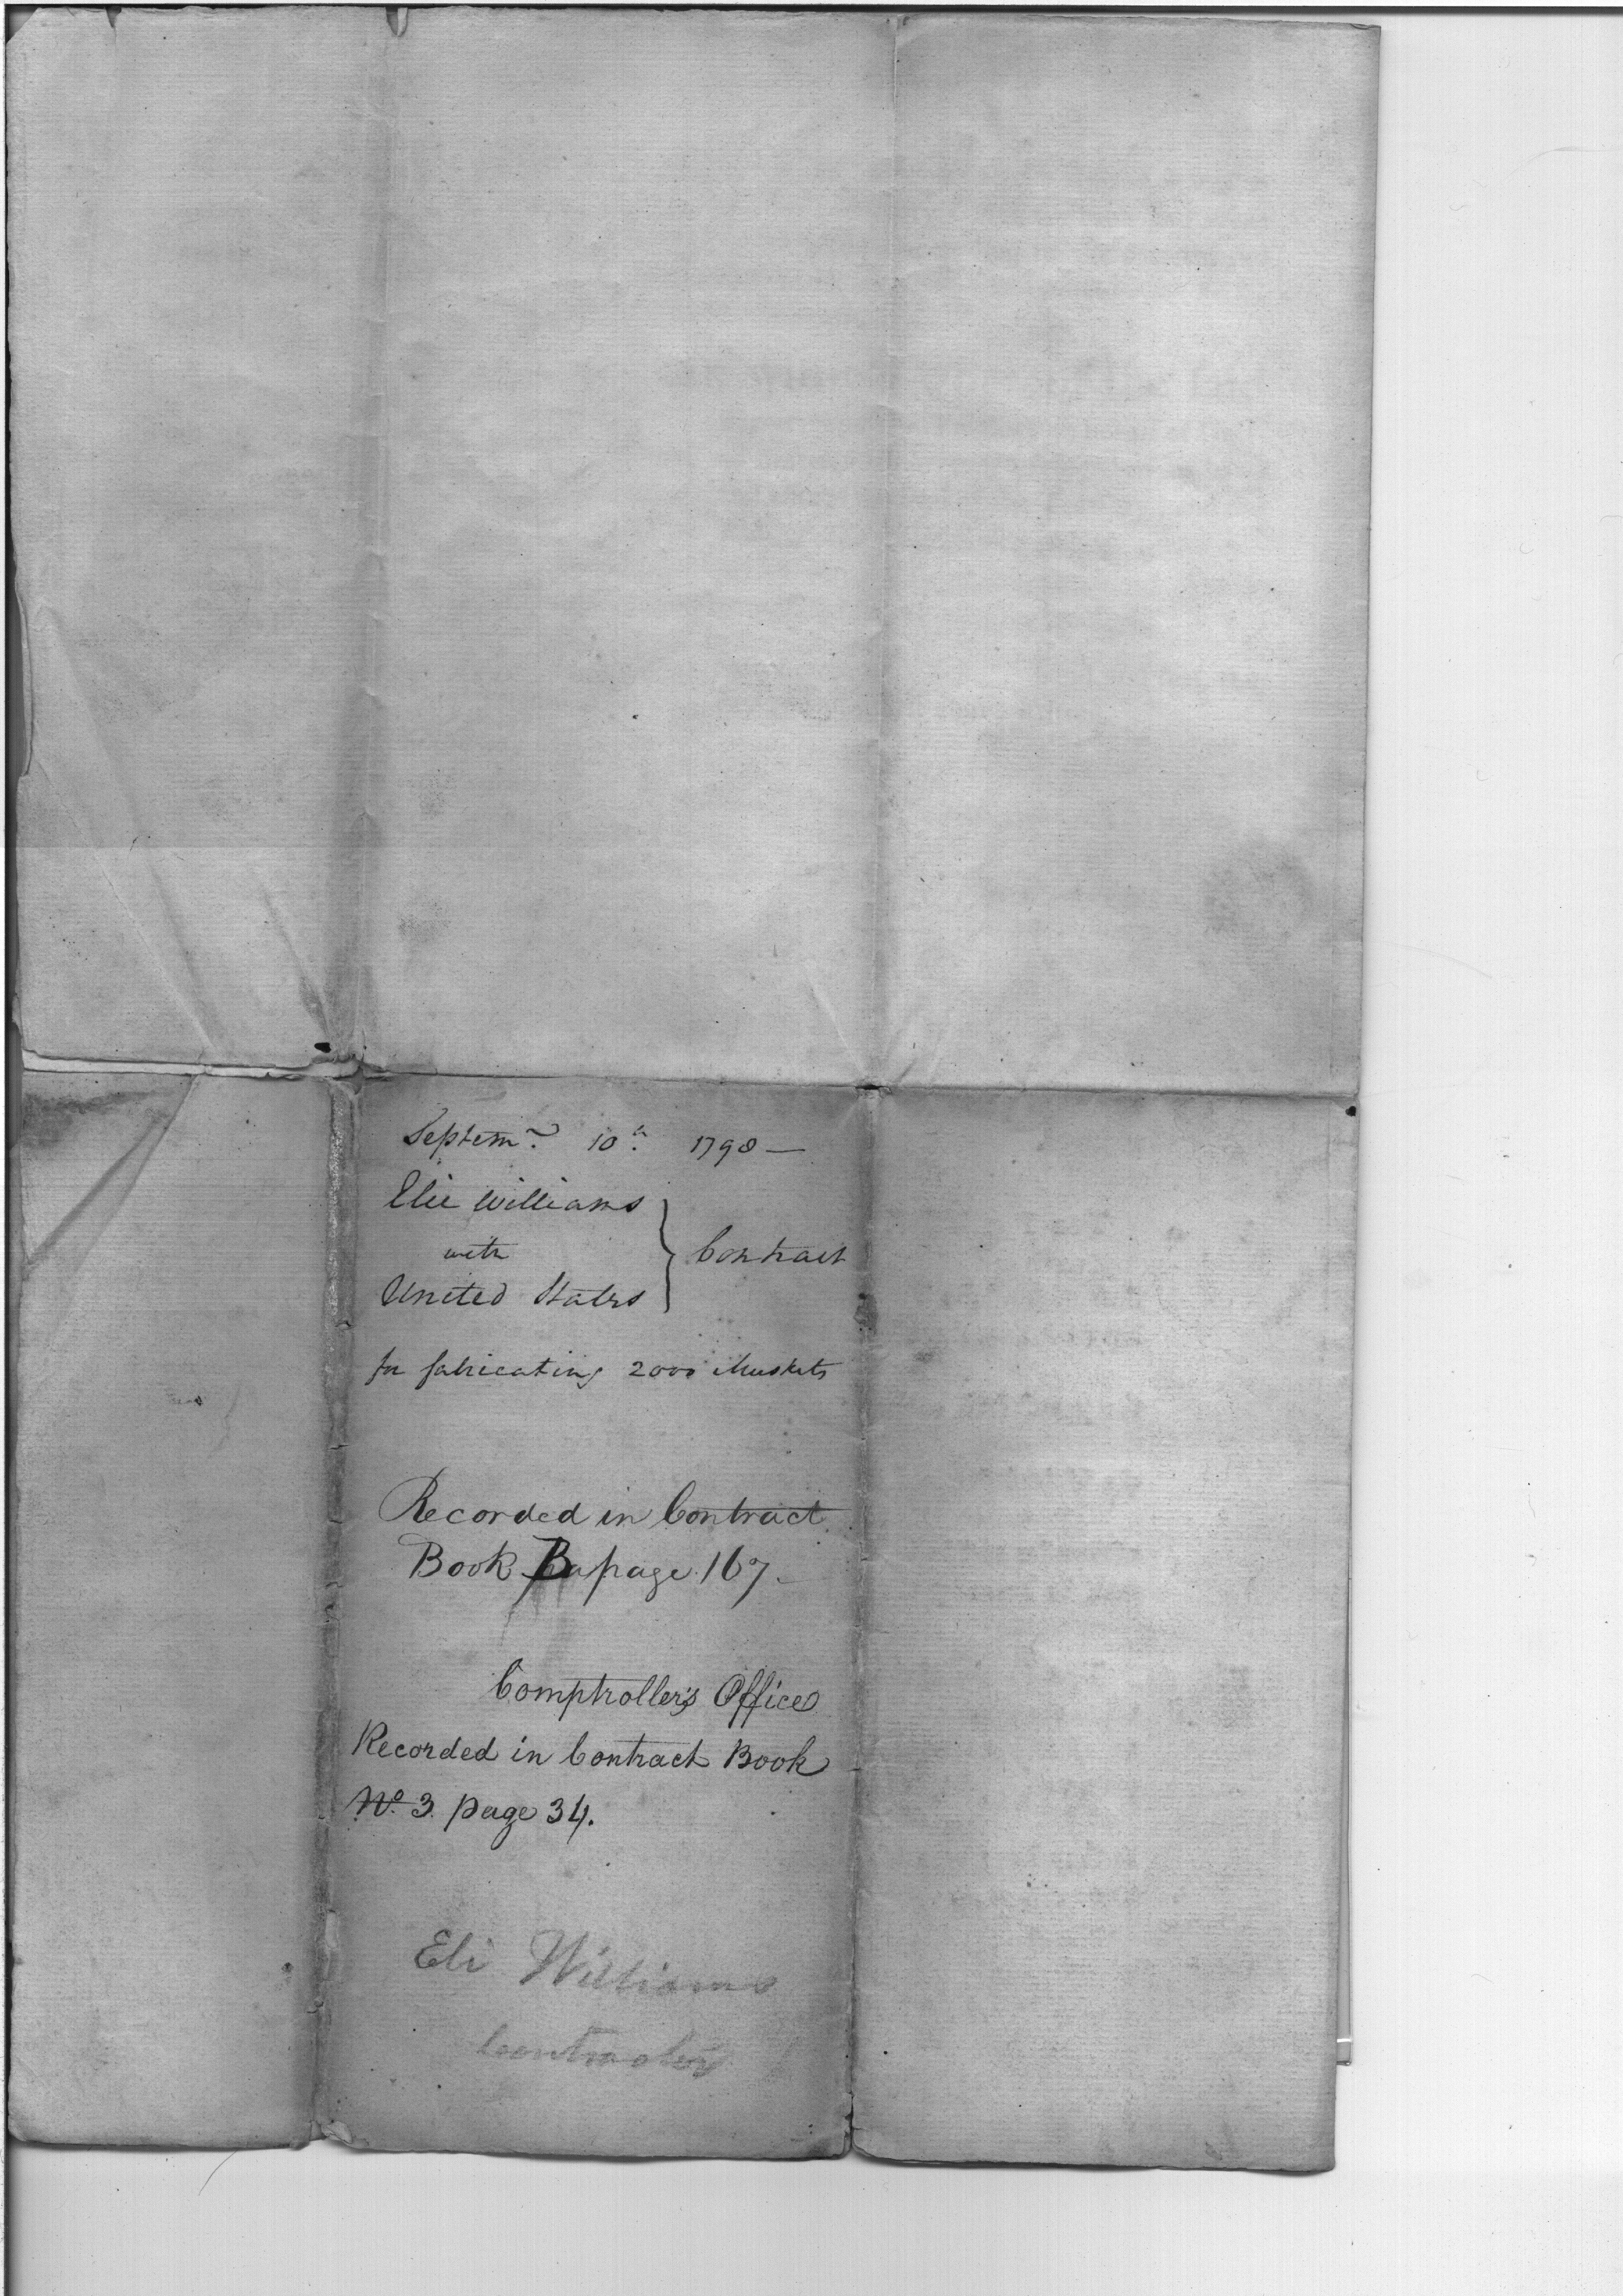 Septemr. 10th. 1798 —
Elie Williams
with
United States
} Contract
for fabricating 2000 Muskets
Recorded in Contract
Book B page 167.
Comptroller's Office
Recorded in Contract Book
No. 3. page 34.
Eli Williams